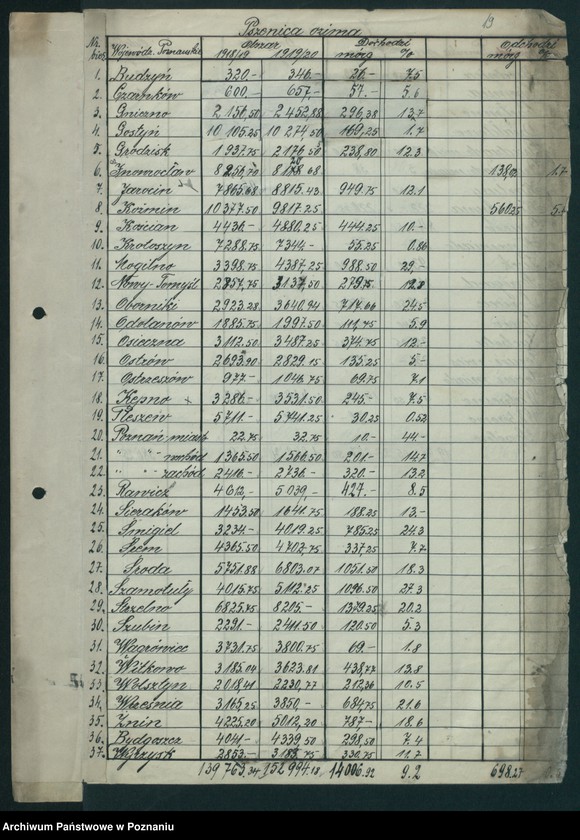 Pszenica ozima
19
Nr. bież. Wojewódz. Poznańskie Obszar Dochodzi Odchodzi
1918/19 1919/20 mórg % mórg %
1. Budzyń 320.- 346.- 26.- 7.5
2. Czarnków 600.- 657.- 57.- 5.6
3. Gniezno 2156,50 2452,88 296,38 13.7
4. Gostyń 10105.25 10274,50 169,25 1.7
5. Grodzisk 1937.75 2176,50 238,80 12.3
6. Inowrocław 138,02 1.7
7. Jarocin 7865.68 8815.43 949.75 12.1
8. Koźmin 10377.50 9817.25 560.25 5.7
9. Kościan 4436.- 4880.25 444.25 10.-
10. Krotoszyn 7288.75 7344.- 55.25 0.86
11. Mogilno 3398.75 4387,25 988.50 29,-
12. Nowy-Tomyśl 2857,75 3137,50 279,75
13. Oborniki 2923.28 3640.94 717.66 24.5
14. Odolanów 1885.75 1997.50 111,75 5.9
15. Osieczna 3112.50 3487.25 374.75 12.-
16. Ostrów 2693.90 2829.15 135.25 5.-
17. Ostrzeszów 977.- 1046.75 69.75 7.1
18. Kępno 3286.- 3531.50 245.- 7.5
19. Pleszew 5711.- 5741.25 30.25 0.52
20. Poznań miasto 22.75 32.75 10.- 44.-
21. " " - wschód 1365.50 1566.50 201.- 14.7
22. " " - zachód 2416.- 2736.- 320.- 13.2
23. Rawicz 4612,- 5039,- 427.- 8.5
24. Sieraków 1453.50 1641.75 188.25 13.-
25. Śmigiel 3234.- 4019.25 785.25 24.3
26. Śrem 4365.50 4702.75 337.25 7.7
27. Środa 5751.88 6803.07 1051.50 18.3
28. Szamotuły 4015.75 5112.25 1096.50 27.3
29. Strzelno 6825.75 8205.- 1379.25 20.2
30. Szubin 2291.- 2411.50 120.50 5.3
31. Wągrówiec 3731.75 3800.75 69.- 1.8
32. Witkowo 3185.04 3623.81 438,77 13.8
33. Wolsztyn 2018.41 2230,77 212,36 10.5
34. Września 3165.25 3850.- 684,75 21.6
35. Żnin 4225.20 5012,20 787.- 18.6
36. Bydgoszcz 4041.- 4339,50 298,50 7.4
37. Wyrzysk 2853.- 3183,75 330.75 11.7
139763,34 152994.13 14006.92 9.2 698.27
Archiwum Państwowe w Poznaniu